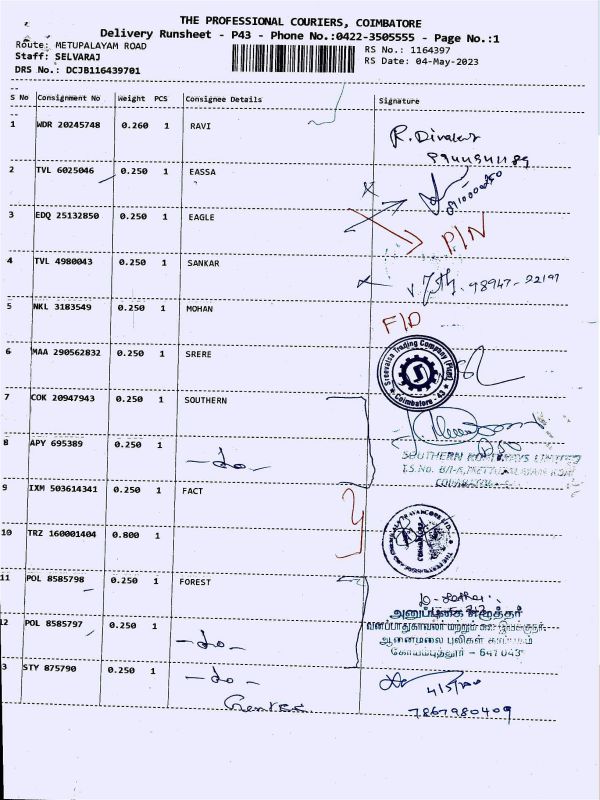 THE PROFESSIONAL COURIERS, COIMBATORE
Delivery Runsheet - P43 - Phone No.:0422-3505555 - Page No.:1
Route: METUPALAYAM ROAD
RS No.: 1164397
Staff: SELVARAJ
RS Date: 04-May-2023
DRS No.: DCJB116439701
S No Consignment No Weight PCS Consignee Details Signature
1 WDR 20245748 0.260 1 RAVI
R. Divakar
9944941189
2 TVL 6025046 0.250 1 EASSA
3 EDQ 25132850 0.250 1 EAGLE
P/N
4 TVL 4980043 0.250 1 SANKAR
98947-22197
5 NKL 3183549 0.250 1 MOHAN
F/D
6 MAA 290562832 0.250 1 SRERE
Sreevatsa Trading Company (Pump)
Coimbatore - 43
7 COK 20947943 0.250 1 SOUTHERN
8 APY 695389 0.250 1
SOUTHERN ROADWAYS LIMITED
T.S.No. 8/1-A, METTUPALAYAM ROAD
COIMBATORE
9 IXM 503614341 0.250 1 FACT
10 TRZ 160001404 0.800 1
11 POL 8585798 0.250 1 FOREST
12 POL 8585797 0.250 1
வனப்பாதுகாவலர் மற்றும் கள இயக்குநர்,
ஆனைமலை புலிகள் காப்பகம்
கோயம்புத்தூர் - 641 043
3 STY 875790 0.250 1
7867980409